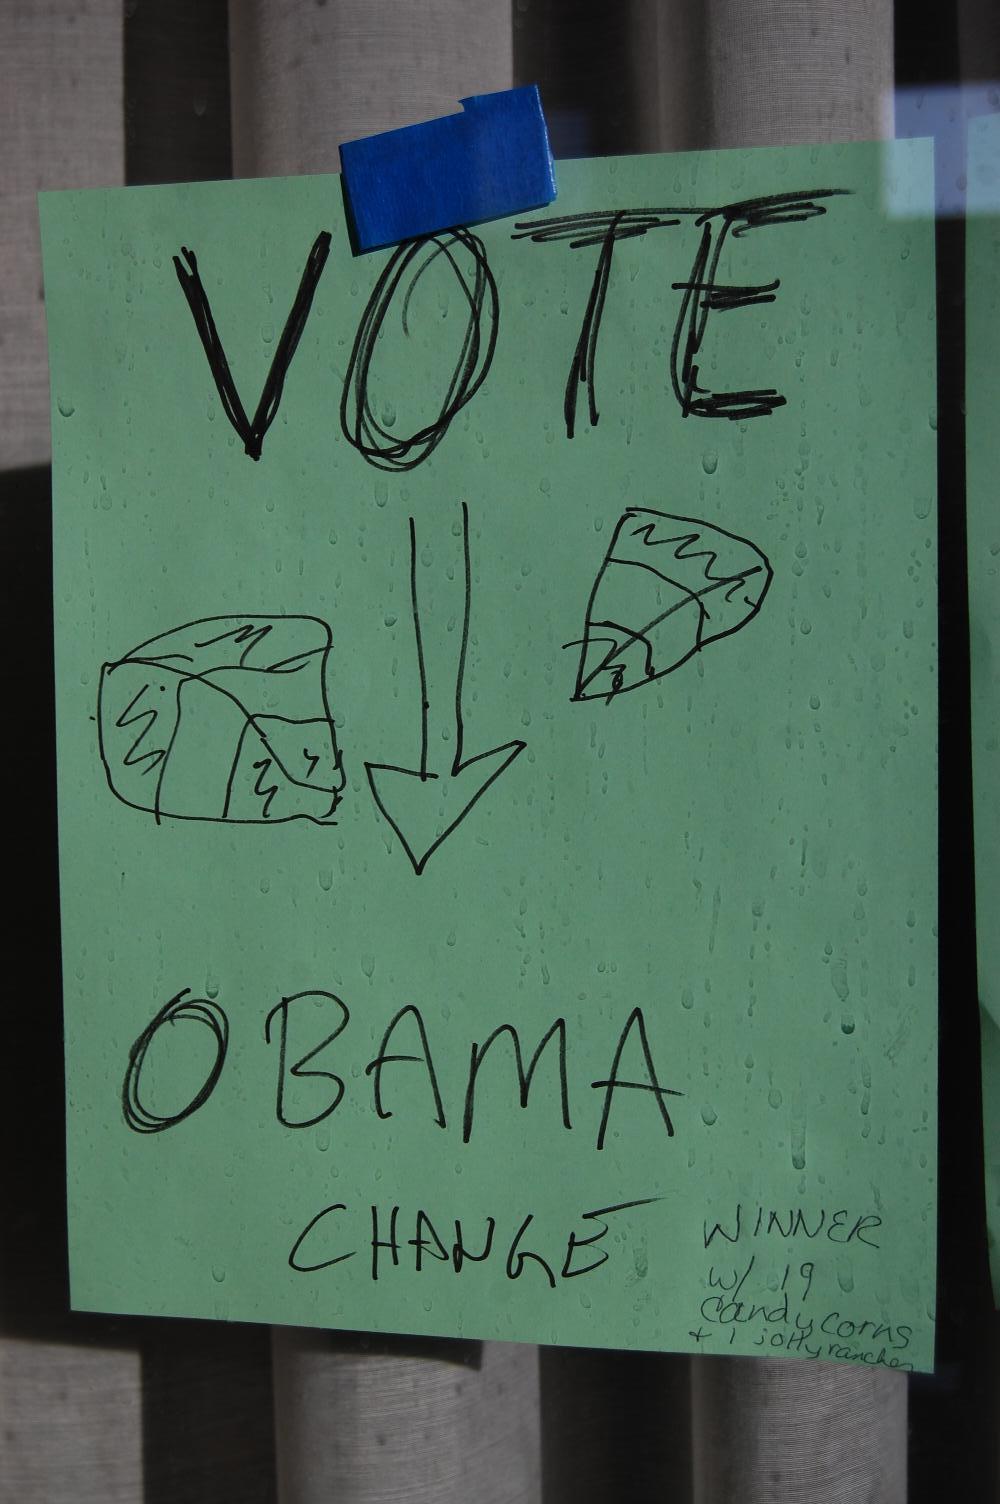 VOTE
OBAMA
CHANGE
WINNER
w/ 19
Candy corns
+ 1 jolly rancher